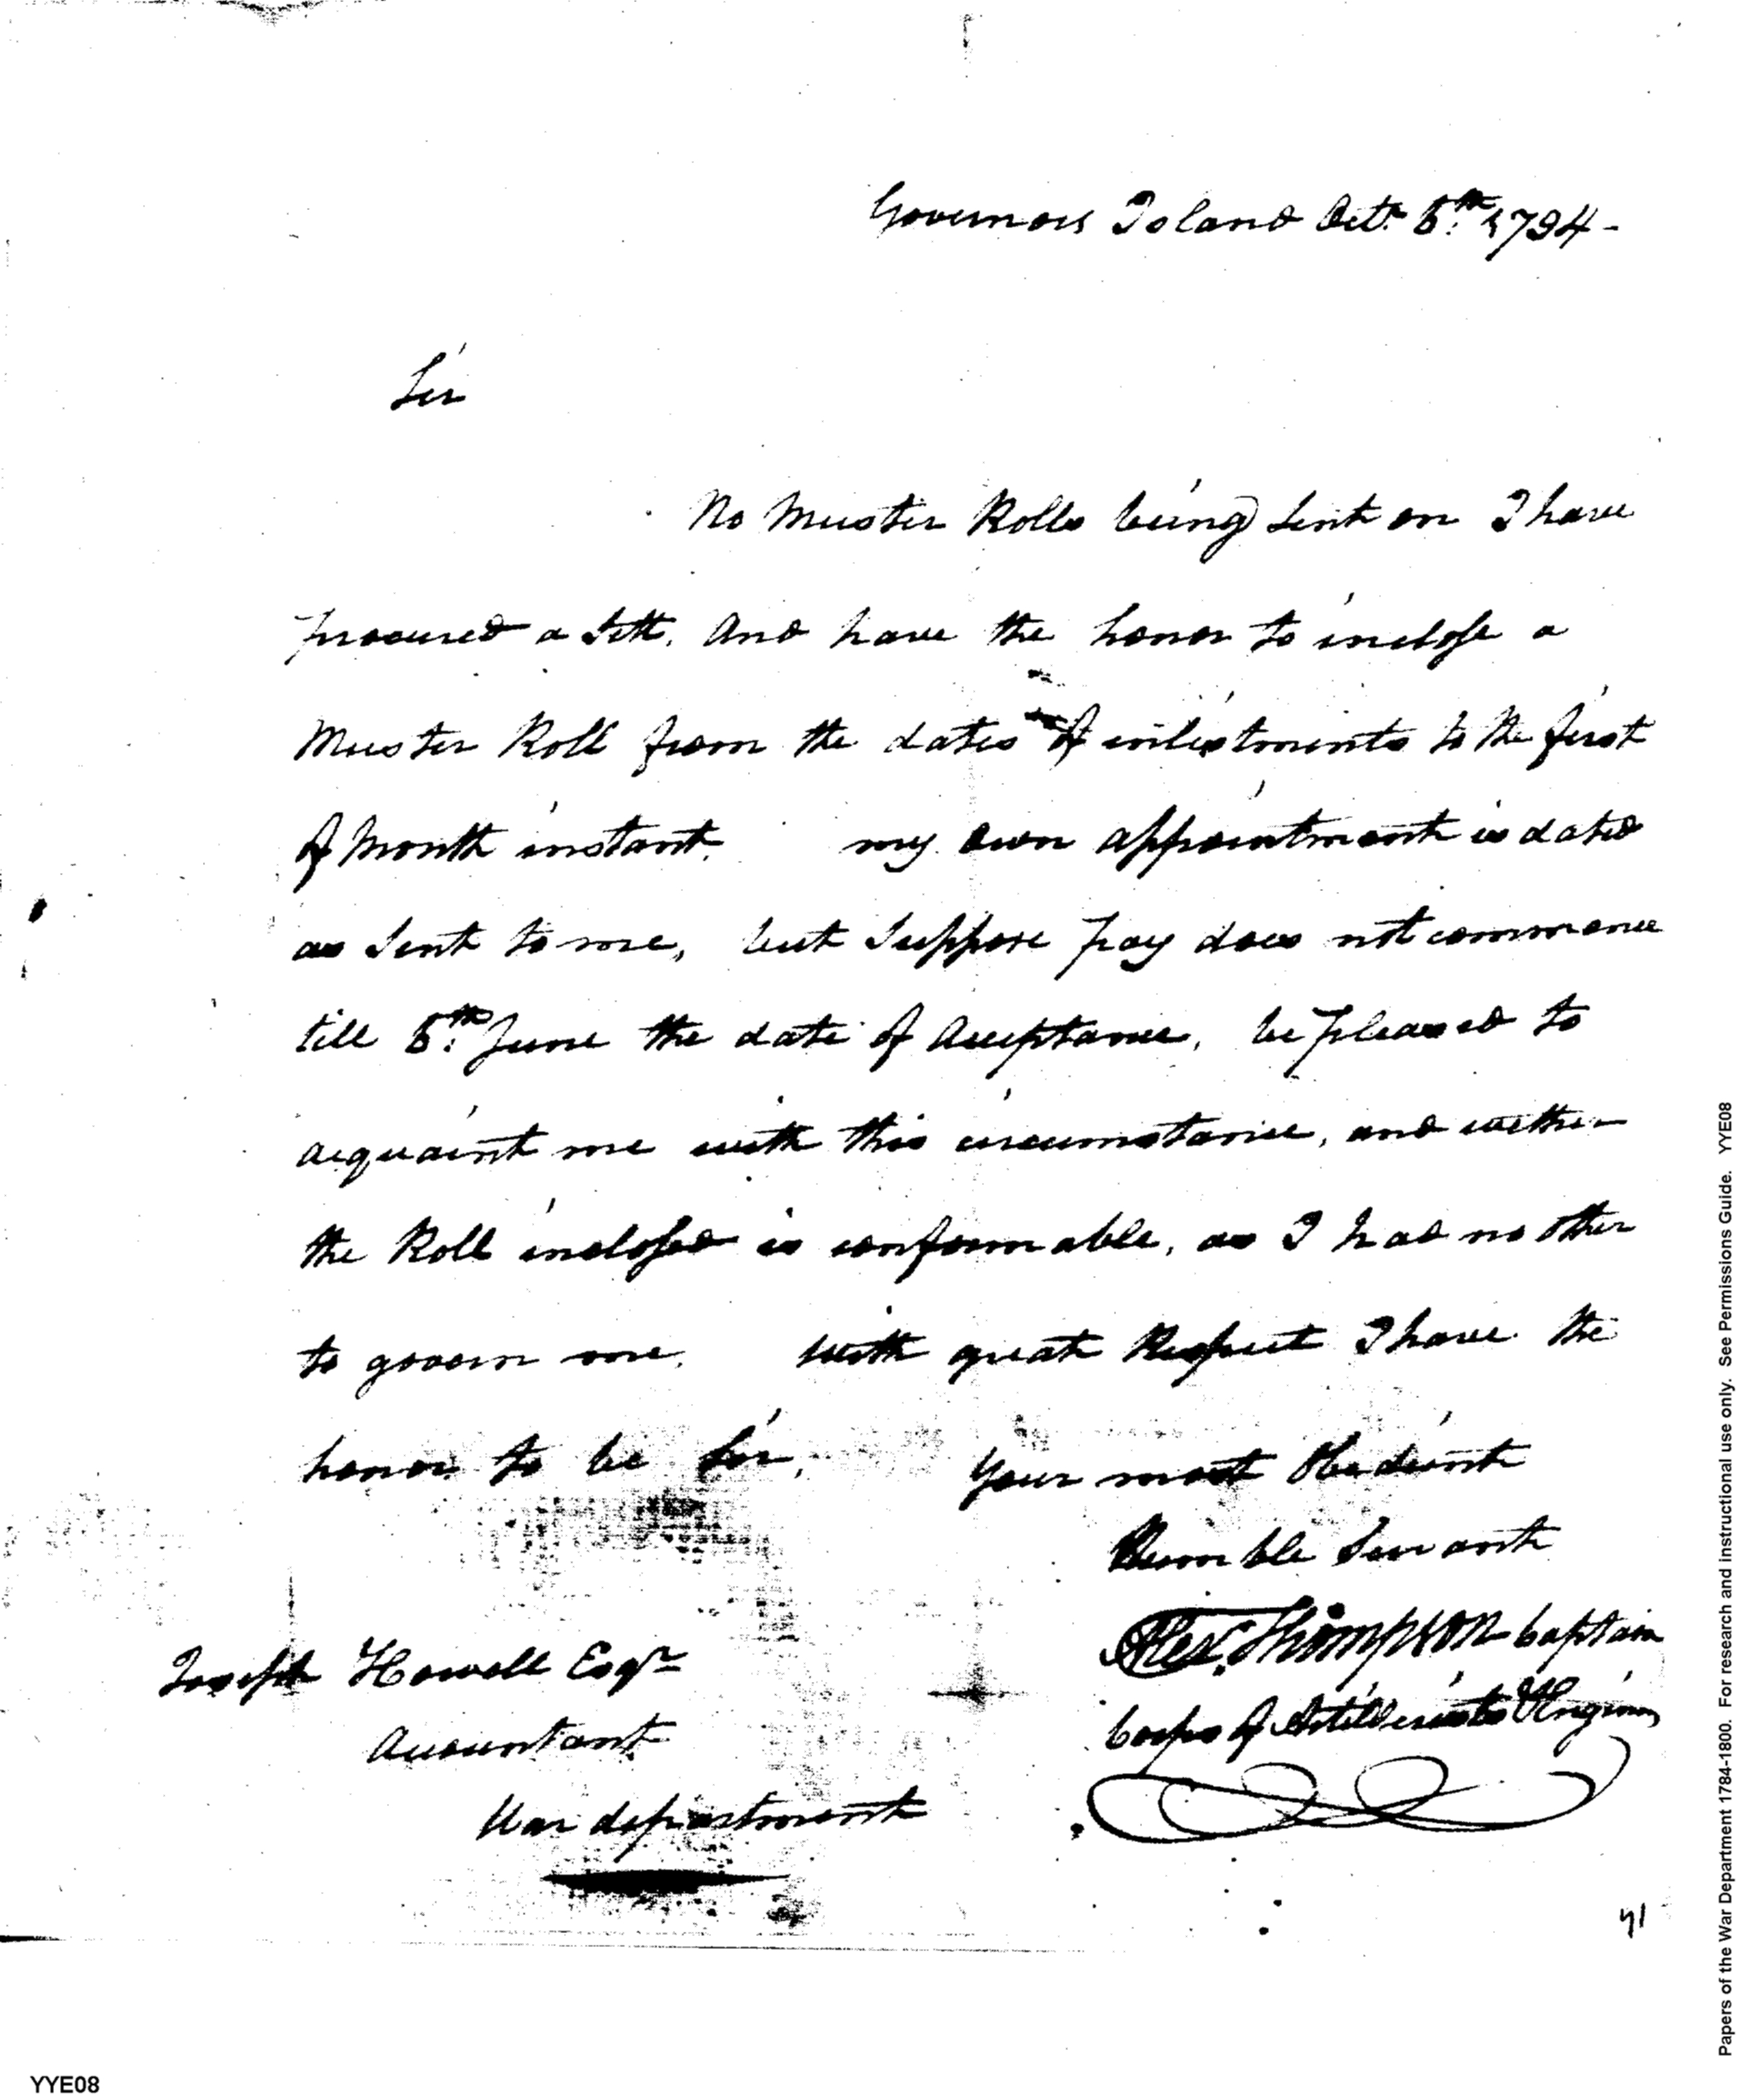 Governors Island Octr. 5th. 1794-
Sir
No Muster Rolls being sent on I have
procured a sett. And have the honor to inclose a
Muster Roll from the dates of inlistments to the first
of Month instant. my own appointment is dated
as sent to me, but suppose pay does not commence
till 5th. June the date of Acceptance, be pleased to
acquaint me with this circumstance, and wether
the Roll inclosed is conformable, as I had no other
to govern me. With great Respect I have the
honor to be Sir, Your most Obedient
Humble Servant
Alex. Thompson Captain
Joseph Howell Esqr
Corps of Artillerists & Engineers
Accountant
War department
41
Papers of the War Department 1784-1800. For research and instructional use only. See Permissions Guide. YYE08
YYE08